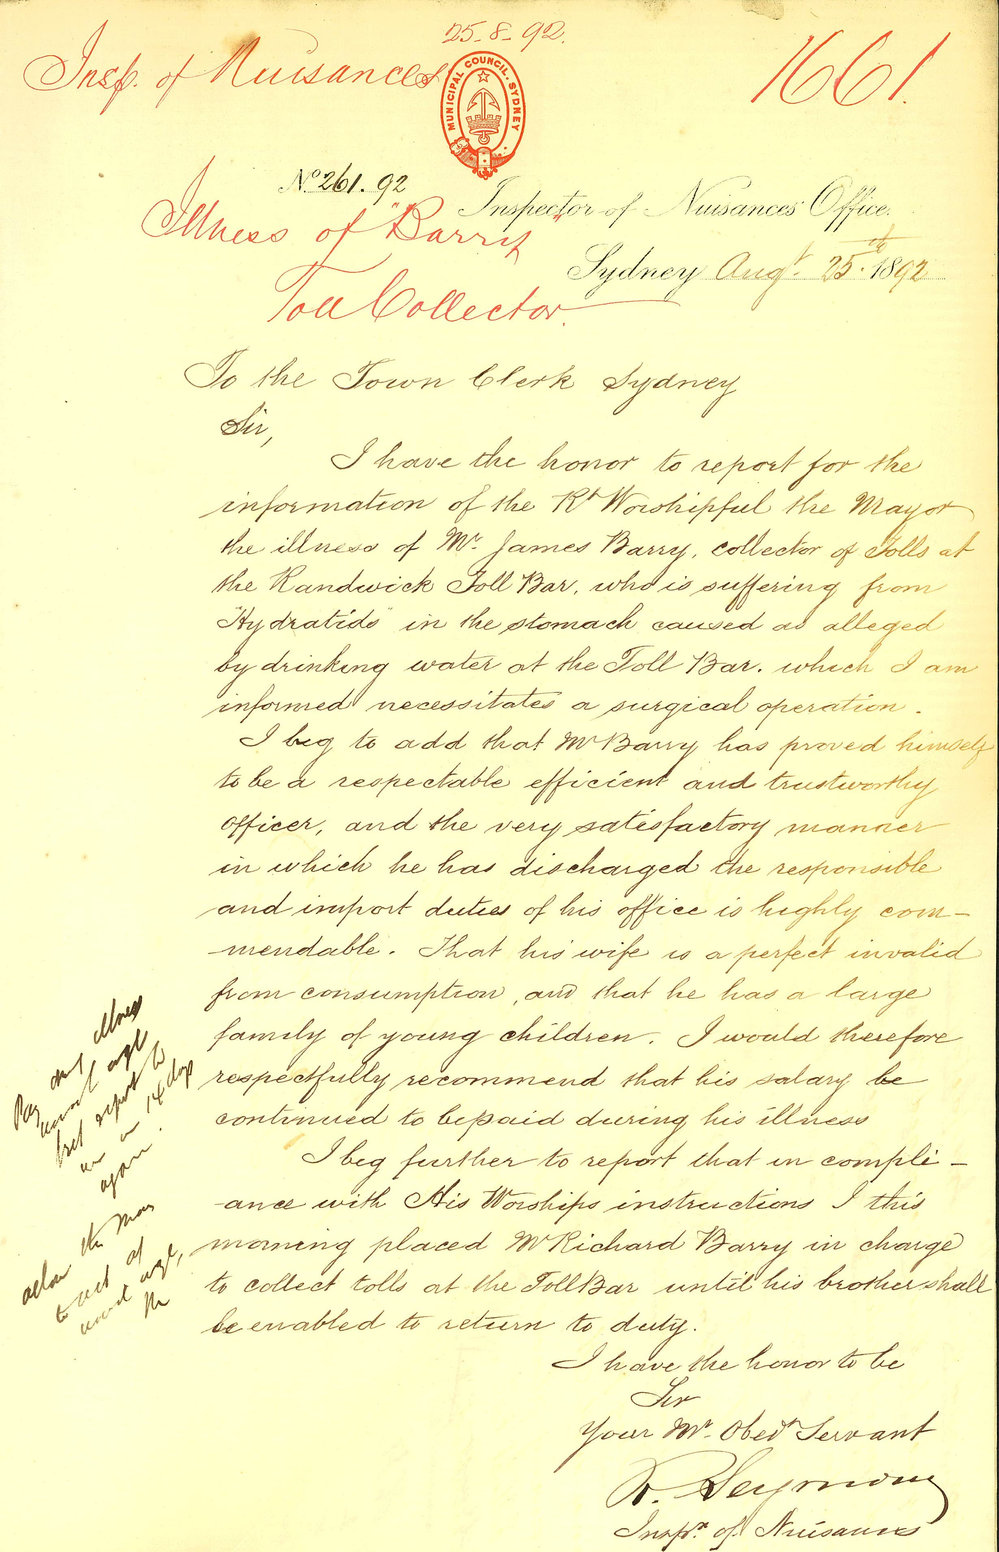 25-8-92.
Insp. of Nuisances
1661.
MUNICIPAL COUNCIL. SYDNEY
No 261. 92
Inspector of Nuisances Office.
Illness of "Barry"
Sydney Augt. 25th 1892
Toll Collector.
To the Town Clerk Sydney
Sir,
I have the honor to report for the
information of the Rt Worshipful the Mayor
the illness of Mr. James Barry, collector of Tolls at
the Randwick Toll Bar, who is suffering from
"Hydratids" in the stomach caused as alleged
by drinking water at the Toll Bar. which I am
informed necessitates a surgical operation.
I beg to add that Mr Barry has proved himself
to be a respectable efficient and trustworthy
officer, and the very satisfactory manner
in which he has discharged the responsible
and import duties of his office is highly com-
mendable. That his wife is a perfect invalid
from consumption, and that he has a large
family of young children. I would therefore
respectfully recommend that his salary be
continued to be paid during his illness
I beg further to report that in compli-
ance with His Worships instructions I this
morning placed Mr Richard Barry in charge
to collect tolls at the Toll Bar until his brother shall
be enabled to return to duty.
I have the honor to be
Sir
Your Mt. Obedt Servant
R. Seymour
Inspr. of Nuisances
Pay illness
but report to
in 14 days
again.
the
to act
the